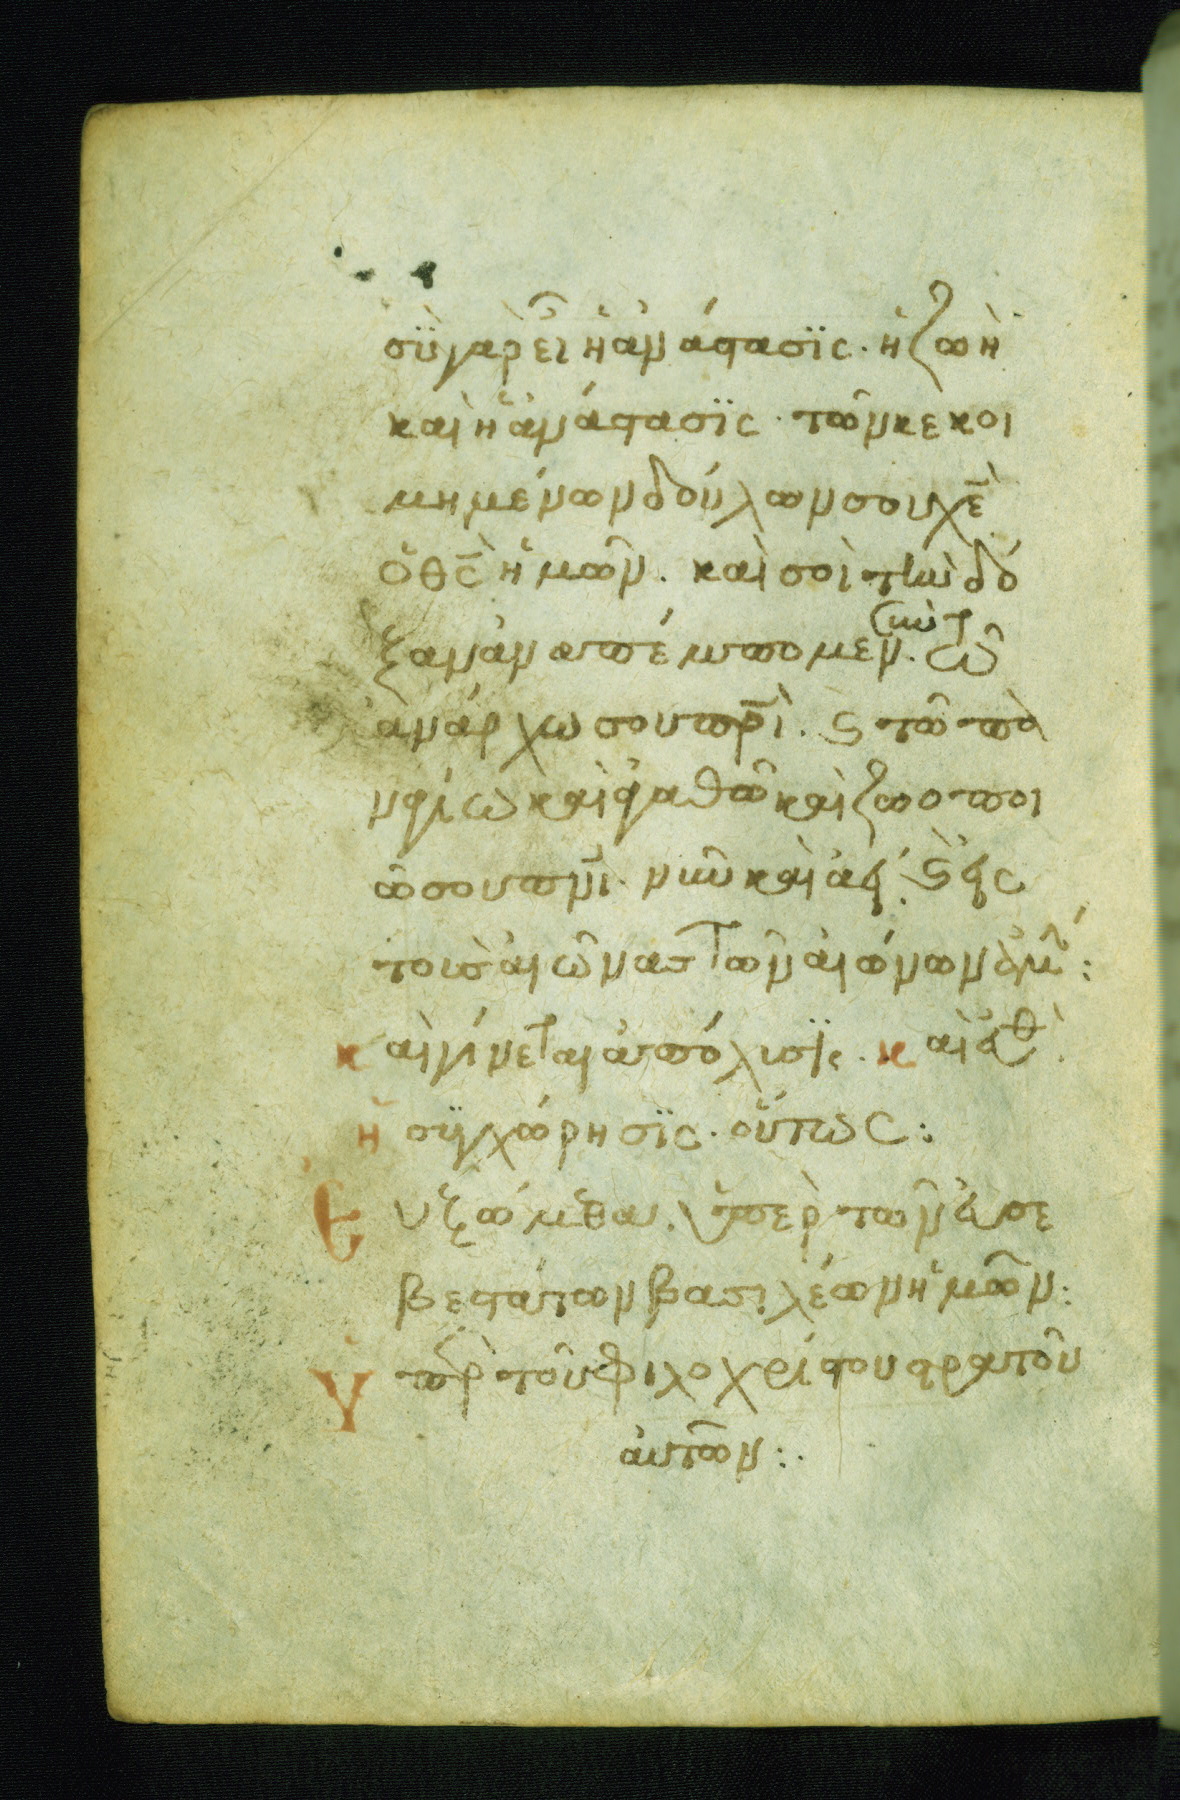 σὺ γὰρ εἶ ἡ ἀνάστασϊς. ἡ ζωὴ
καὶ ἡ ἀνάστασϊς. τῶν κεκοι
μημένων δούλων σου χε̅
ὁ θς̅ ἡμῶν. καὶ σοὶ τὴν δό
ξαν ἀναπέμπομεν. σὺν τῶ
ἀνάρχω σου πρι̅. ϛ τῶ πα
ναγίω καὶ ἀγαθῶ καὶ ζωοποι
ῶ σου πνι̅. νῦν καὶ ἀεί. ϛ εἰς
τοὺς αἰῶνας τῶν αἰώνων ἀμ:
καὶ γίνεται ἀπόλυσϊς. καὶ εὐθ
ἡ συγχώρησϊς. οὕτως:
Εὐξώμεθα. ὑπὲρ τῶν εὐσε
βεστάτων βασιλέων ἡμῶν:
Υπὲρ τοῦ φιλοχρίστου στρατοῦ
αὐτῶν:.